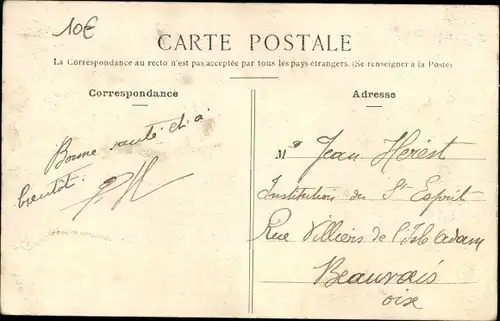 10€
CARTE POSTALE
La Correspondance au recto n'est pas acceptée par tous les pays étrangers. (Se renseigner à la Poste)
Correspondance
Bonne santé et à
bientôt.
Adresse
M Jean Herest
Institution du St Esprit
Rue Villiers de l'Isle Adam
Beauvais
oise